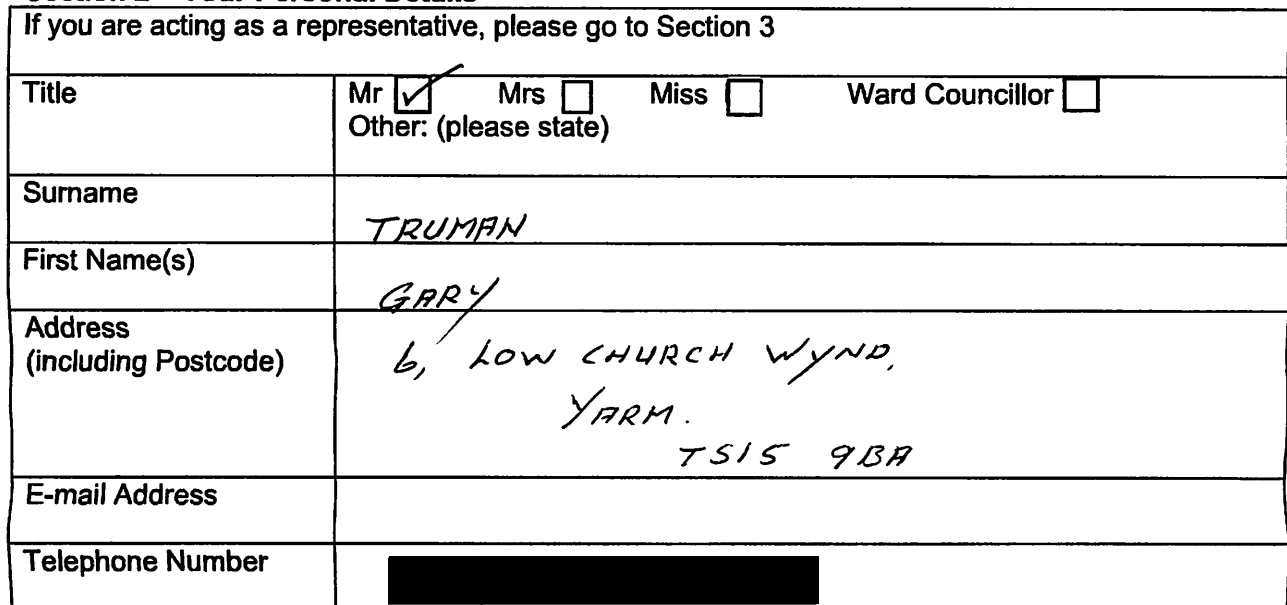 If you are acting as a representative, please go to Section 3
Title
Mr ☑ Mrs ☐ Miss ☐ Ward Councillor ☐
Other: (please state)
Surname
TRUMAN
First Name(s)
GARY
Address
(including Postcode)
6, LOW CHURCH WYND,
YARM.
TS15 9BA
E-mail Address
Telephone Number